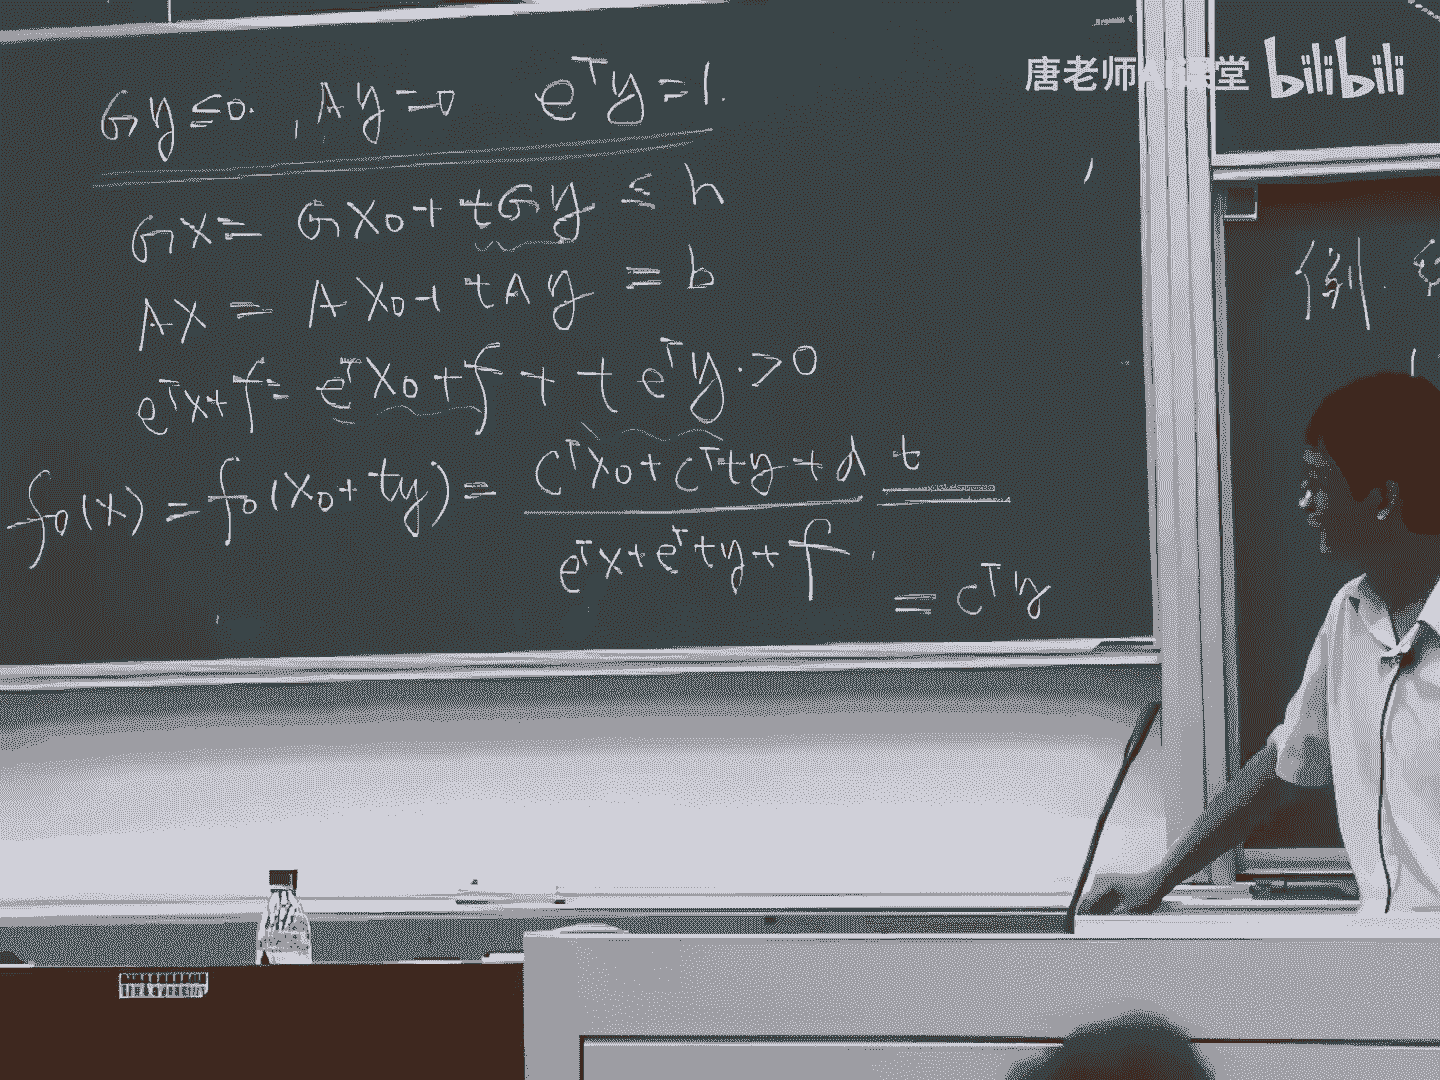 唐老师AI课堂 bilibili
Gy≤0, Ay=0 eᵀy=1.
Gx= Gx₀+tGy ≤ h
Ax = Ax₀+tAy = b
eᵀx+f= eᵀx₀+f+t eᵀy.>0
f₀(x) = f₀(x₀+ty)= (cᵀx₀+cᵀty+d)/(eᵀx+eᵀty+f) t
= cᵀy
例.